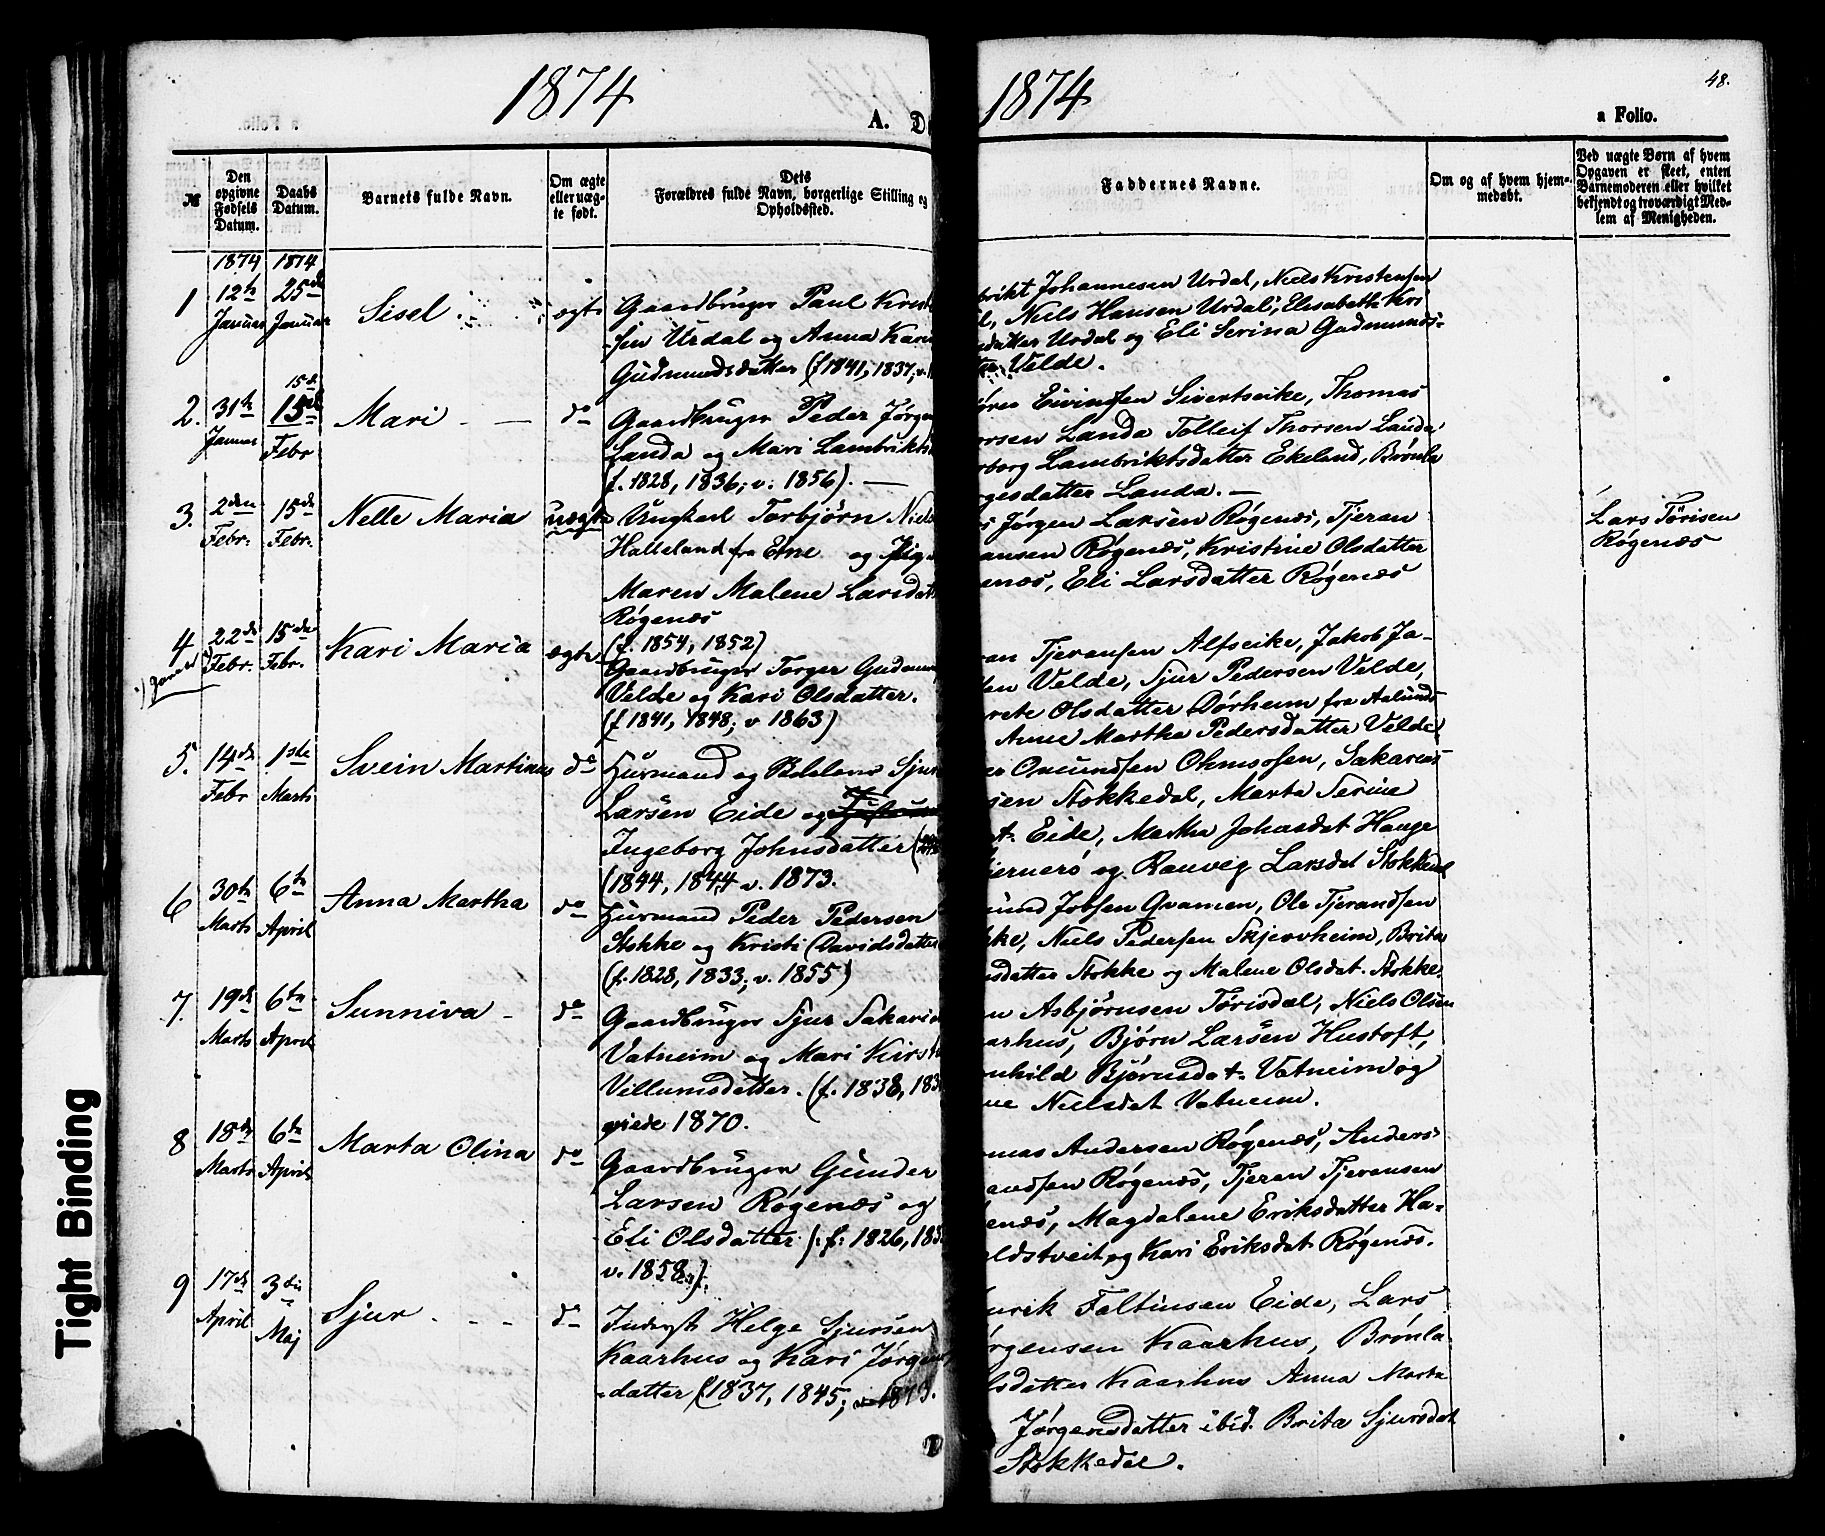 1874
A. D
1874
48.
a Folio.
№
Den opgivne Fødsels Datum.
Daabs Datum.
Barnets fulde Navn.
Om ægte eller uægte født.
Dets
Forældres fulde Navn, borgerlige Stilling og
Opholdssted.
Faddernes Navne.
Om og af hvem hjemmedøbt.
Ved uægte Børn af hvem
Opgaven er skeet, enten
Barnemoderen eller hvilket
bekjendt og troværdigt Med-
lem af Menigheden.
1874 1874
1
12te Januar
25de Januar
Sisel
ægte
Gaardbruger Paul
Urdal og Anna Kari
Gudmundsdatter (f 1841, 1837; v.
Johannesen Urdal, Niels Kristensen
Niels Hansen Urdal, Elisabeth
datter Urdal og Eli Serina Gudmunds-
Velde.
2.
31te Januar
15de
15de Febr
Mari
do
Gaardbruger Peder Jørgen
Landa og Mari Lambrikts
f. 1828, 1836; v. 1856).
Eivindsen Sivertseike, Thomas
orsen Landa Tolleif Thorsen Landa
borg Lambriktsdatter Ekeland, Brønla
gesdatter Landa.
3.
2den Febr.
15de Febr.
Nelle Maria
uægte
Ungkarl Torbjørn Niels
Halleland fra Etne og Pige
Maren Malene Larsdat
Røgenæs
(f. 1854, 1852)
Jørgen Larsen Røgenæs, Tjeran
ansen Røgenæs, Kristine Olsdatter
enæs, Eli Larsdatter Røgenæs
Lars Tørisen
Røgenæs
4
22de Febr.
15de Febr.
Kari Maria
ægte
Gaardbruger Torger Gudmun
Velde og Kari Olsdatter.
(f 1841, 1848; v 1863)
ran Tjeransen Alfseike, Jakob Ja-
sen Velde, Sjur Pedersen Velde,
Olsdatter Dørheim fra
Anne Martha Pedersdatter Velde
5.
14de Febr
1ste Marts
Svein Martinus
do
Husmand og Sjur
Larsen Eide og
Ingeborg Johnsdatter
(1844, 1844 v. 1873.
Omundsen Ohmossen, Sakarias
sen Stokkedal, Marta Serine
t. Eide, Martha Johnsdat Hauge
Bjernerø og Ranveg Larsdat Stokkedal
6
30te Marts
6te April
Anna Martha
do
Husmand Peder Pedersen
Stokke og Kristi Davidsdatter
(f. 1828, 1833; v. 1855)
mund Jobsen Qvamen, Ole Tjerandsen
kke, Niels Pedersen Skjervheim, Brita
sdatter Stokke og Malene Olsdat. Stokke
7.
19de Marts
6te April
Sunniva
do
Gaardbruger Sjur Sakarias
Vatneim og Mari Kirst
Villumsdatter. (f. 1838, 183
viede 1870.
n Asbjørnsen Tørisdal, Niels Olsen
aarhus, Bjørn Larsen Hustoft,
nhild Bjørnsdat. Vatneim og
ne Nielsdat Vatneim.
8
18de Marts
6te April
Marta Olina
do
Gaardbruger Gunder
Larsen Røgenæs og
Eli Olsdatter (: f: 1826, 183
v. 1858:).
mas Andersen Røgenæs, Anders
andsen Røgenæs, Tjeran Tjeransen
enæs, Magdalene Eriksdatter Ha-
ldstveit, og Kari Eriksdat. Røgenæs.
9
17de April
3die Maj
Sjur
do
Inderst Helge Sjursen
Kaarhus og Kari Jørgens
datter (1837, 1845; v. 1873.
nrik Faltinsen Eide, Lars
ørgensen Kaarhus, Brønla
lsdatter Kaarhus Anna Marta
Jørgensdatter ibid. Brita Sjursdat
Stokkedal.
Tight Binding